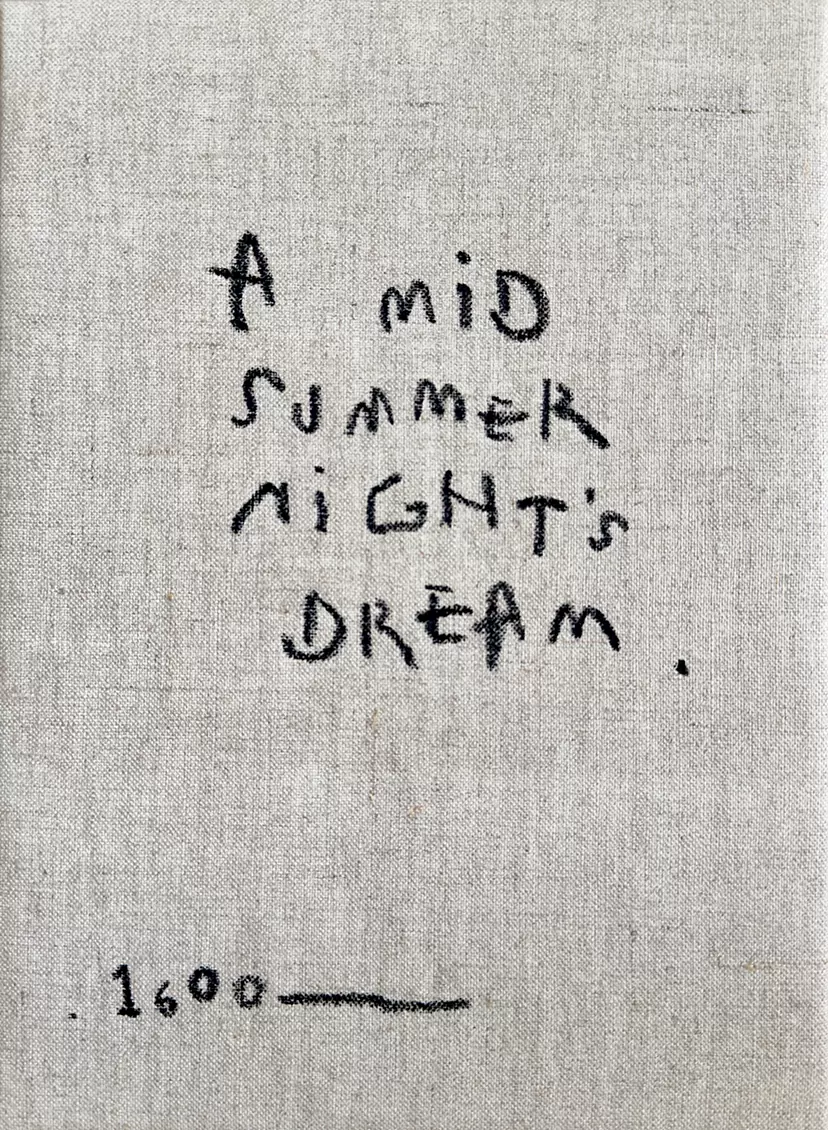 A MiD
SUMMER
NiGHT'S
DREAM.
.1600—